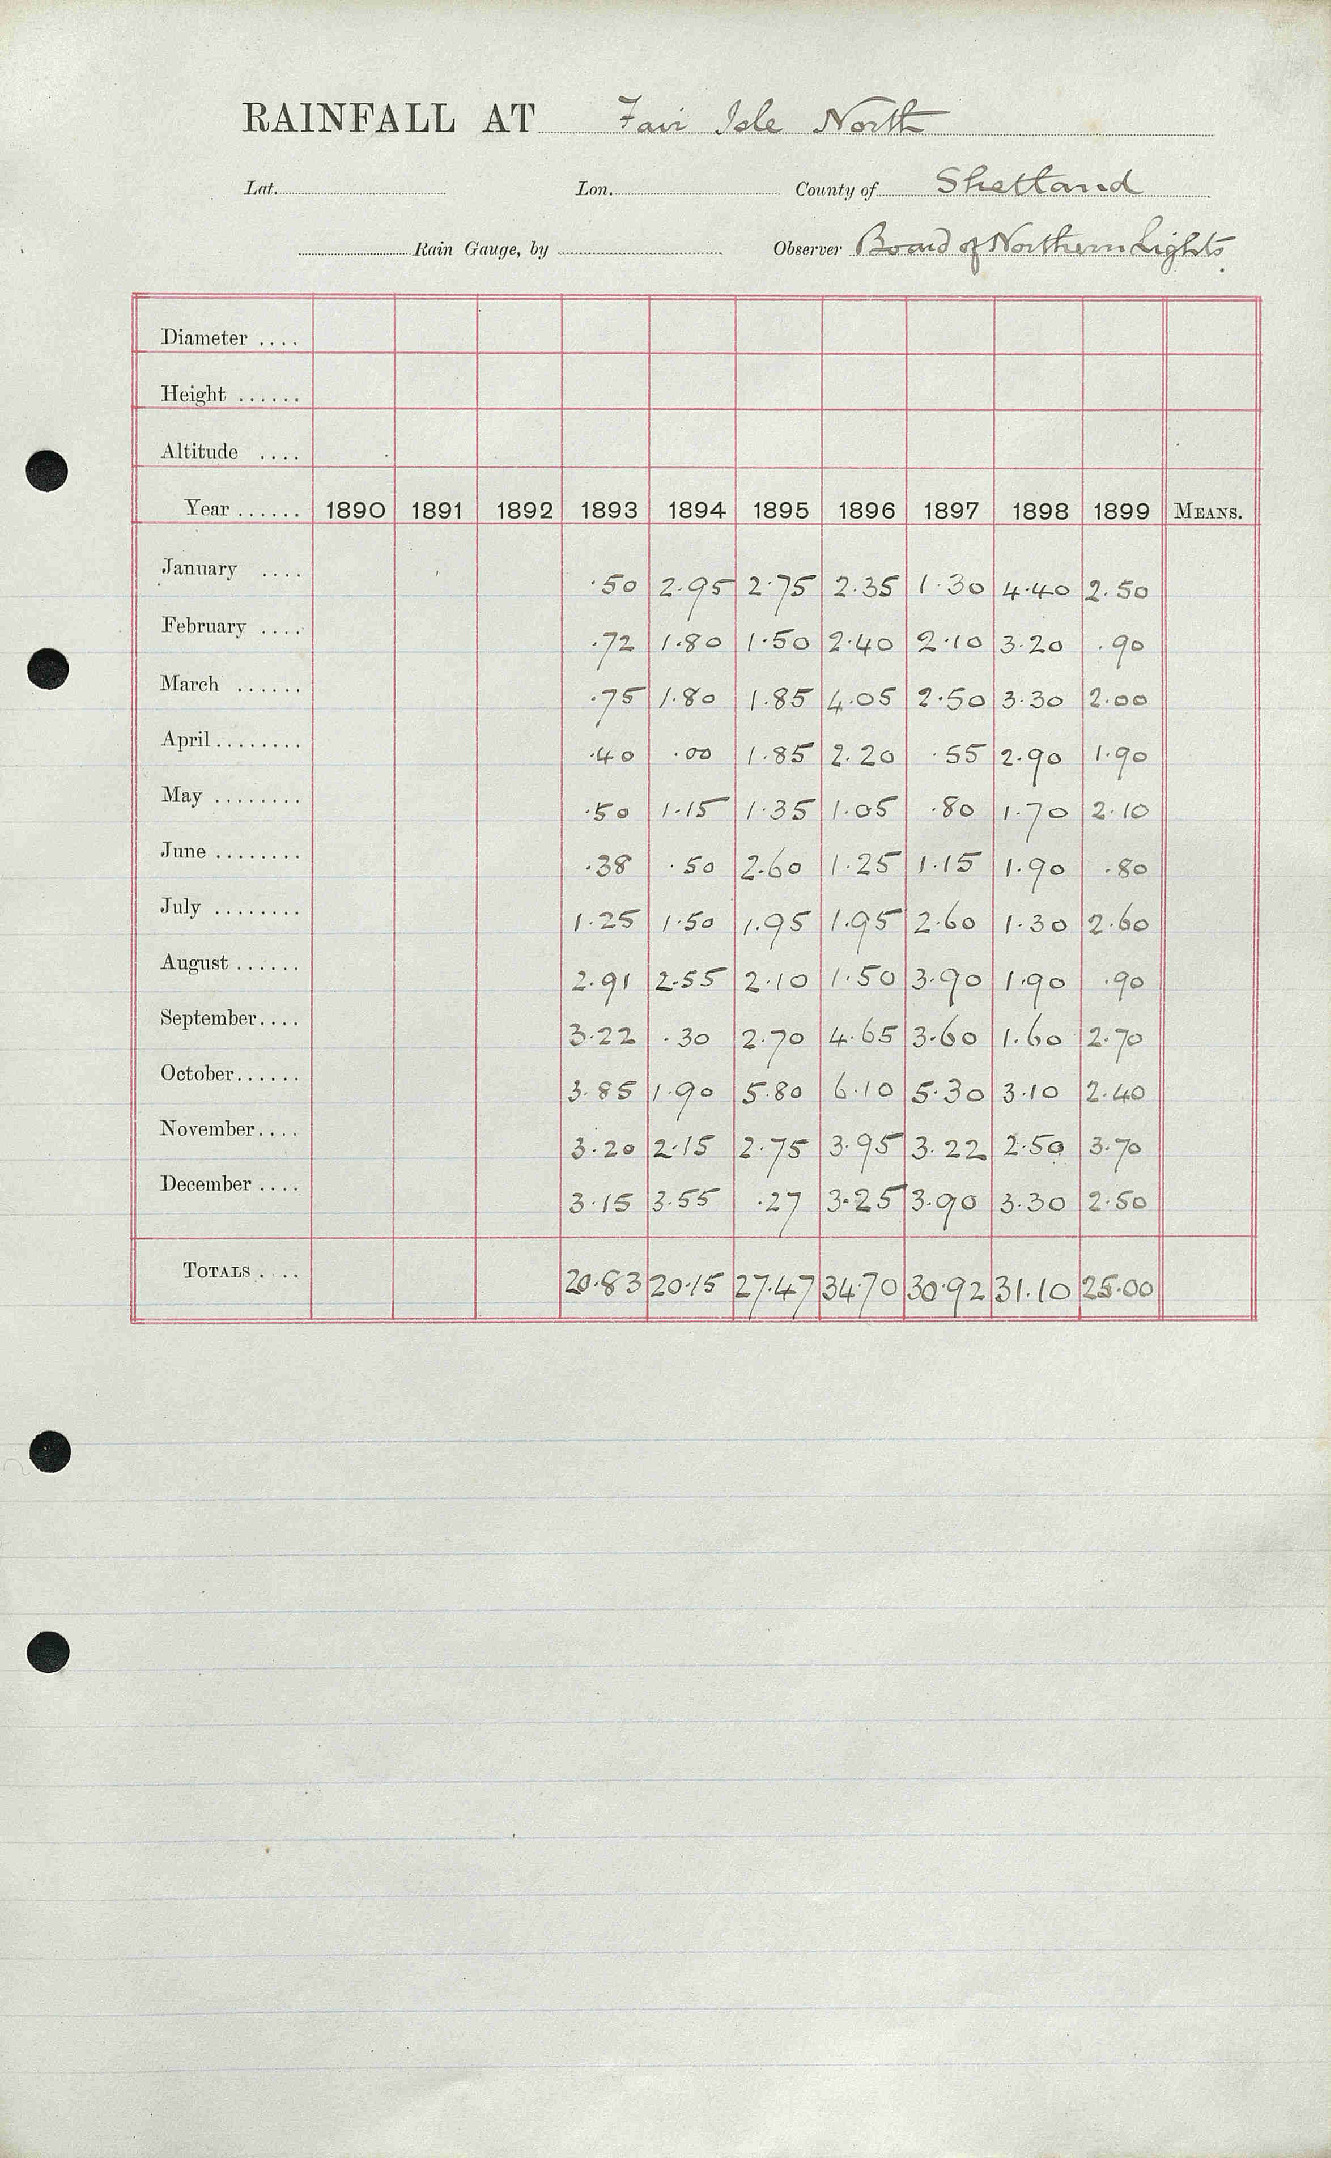 RAINFALL AT Fair Isle North
Lat. Lon. County of Shetland
Rain Gauge, by Observer Board of Northern Lights.
Diameter ....
Height ......
Altitude ....
Year ...... 1890 1891 1892 1893 1894 1895 1896 1897 1898 1899 MEANS.
January .... .50 2.95 2.75 2.35 1.30 4.40 2.50
February .... .72 1.80 1.50 2.40 2.10 3.20 .90
March ...... .75 1.80 1.85 4.05 2.50 3.30 2.00
April ........ .40 .00 1.85 2.20 .55 2.90 1.90
May ........ .50 1.15 1.35 1.05 .80 1.70 2.10
June ........ .38 .50 2.60 1.25 1.15 1.90 .80
July ........ 1.25 1.50 1.95 1.95 2.60 1.30 2.60
August ...... 2.91 2.55 2.10 1.50 3.90 1.90 .90
September.... 3.22 .30 2.70 4.65 3.60 1.60 2.70
October...... 3.85 1.90 5.80 6.10 5.30 3.10 2.40
November.... 3.20 2.15 2.75 3.95 3.22 2.50 3.70
December .... 3.15 3.55 .27 3.25 3.90 3.30 2.50
TOTALS .... 20.83 20.15 27.47 34.70 30.92 31.10 25.00